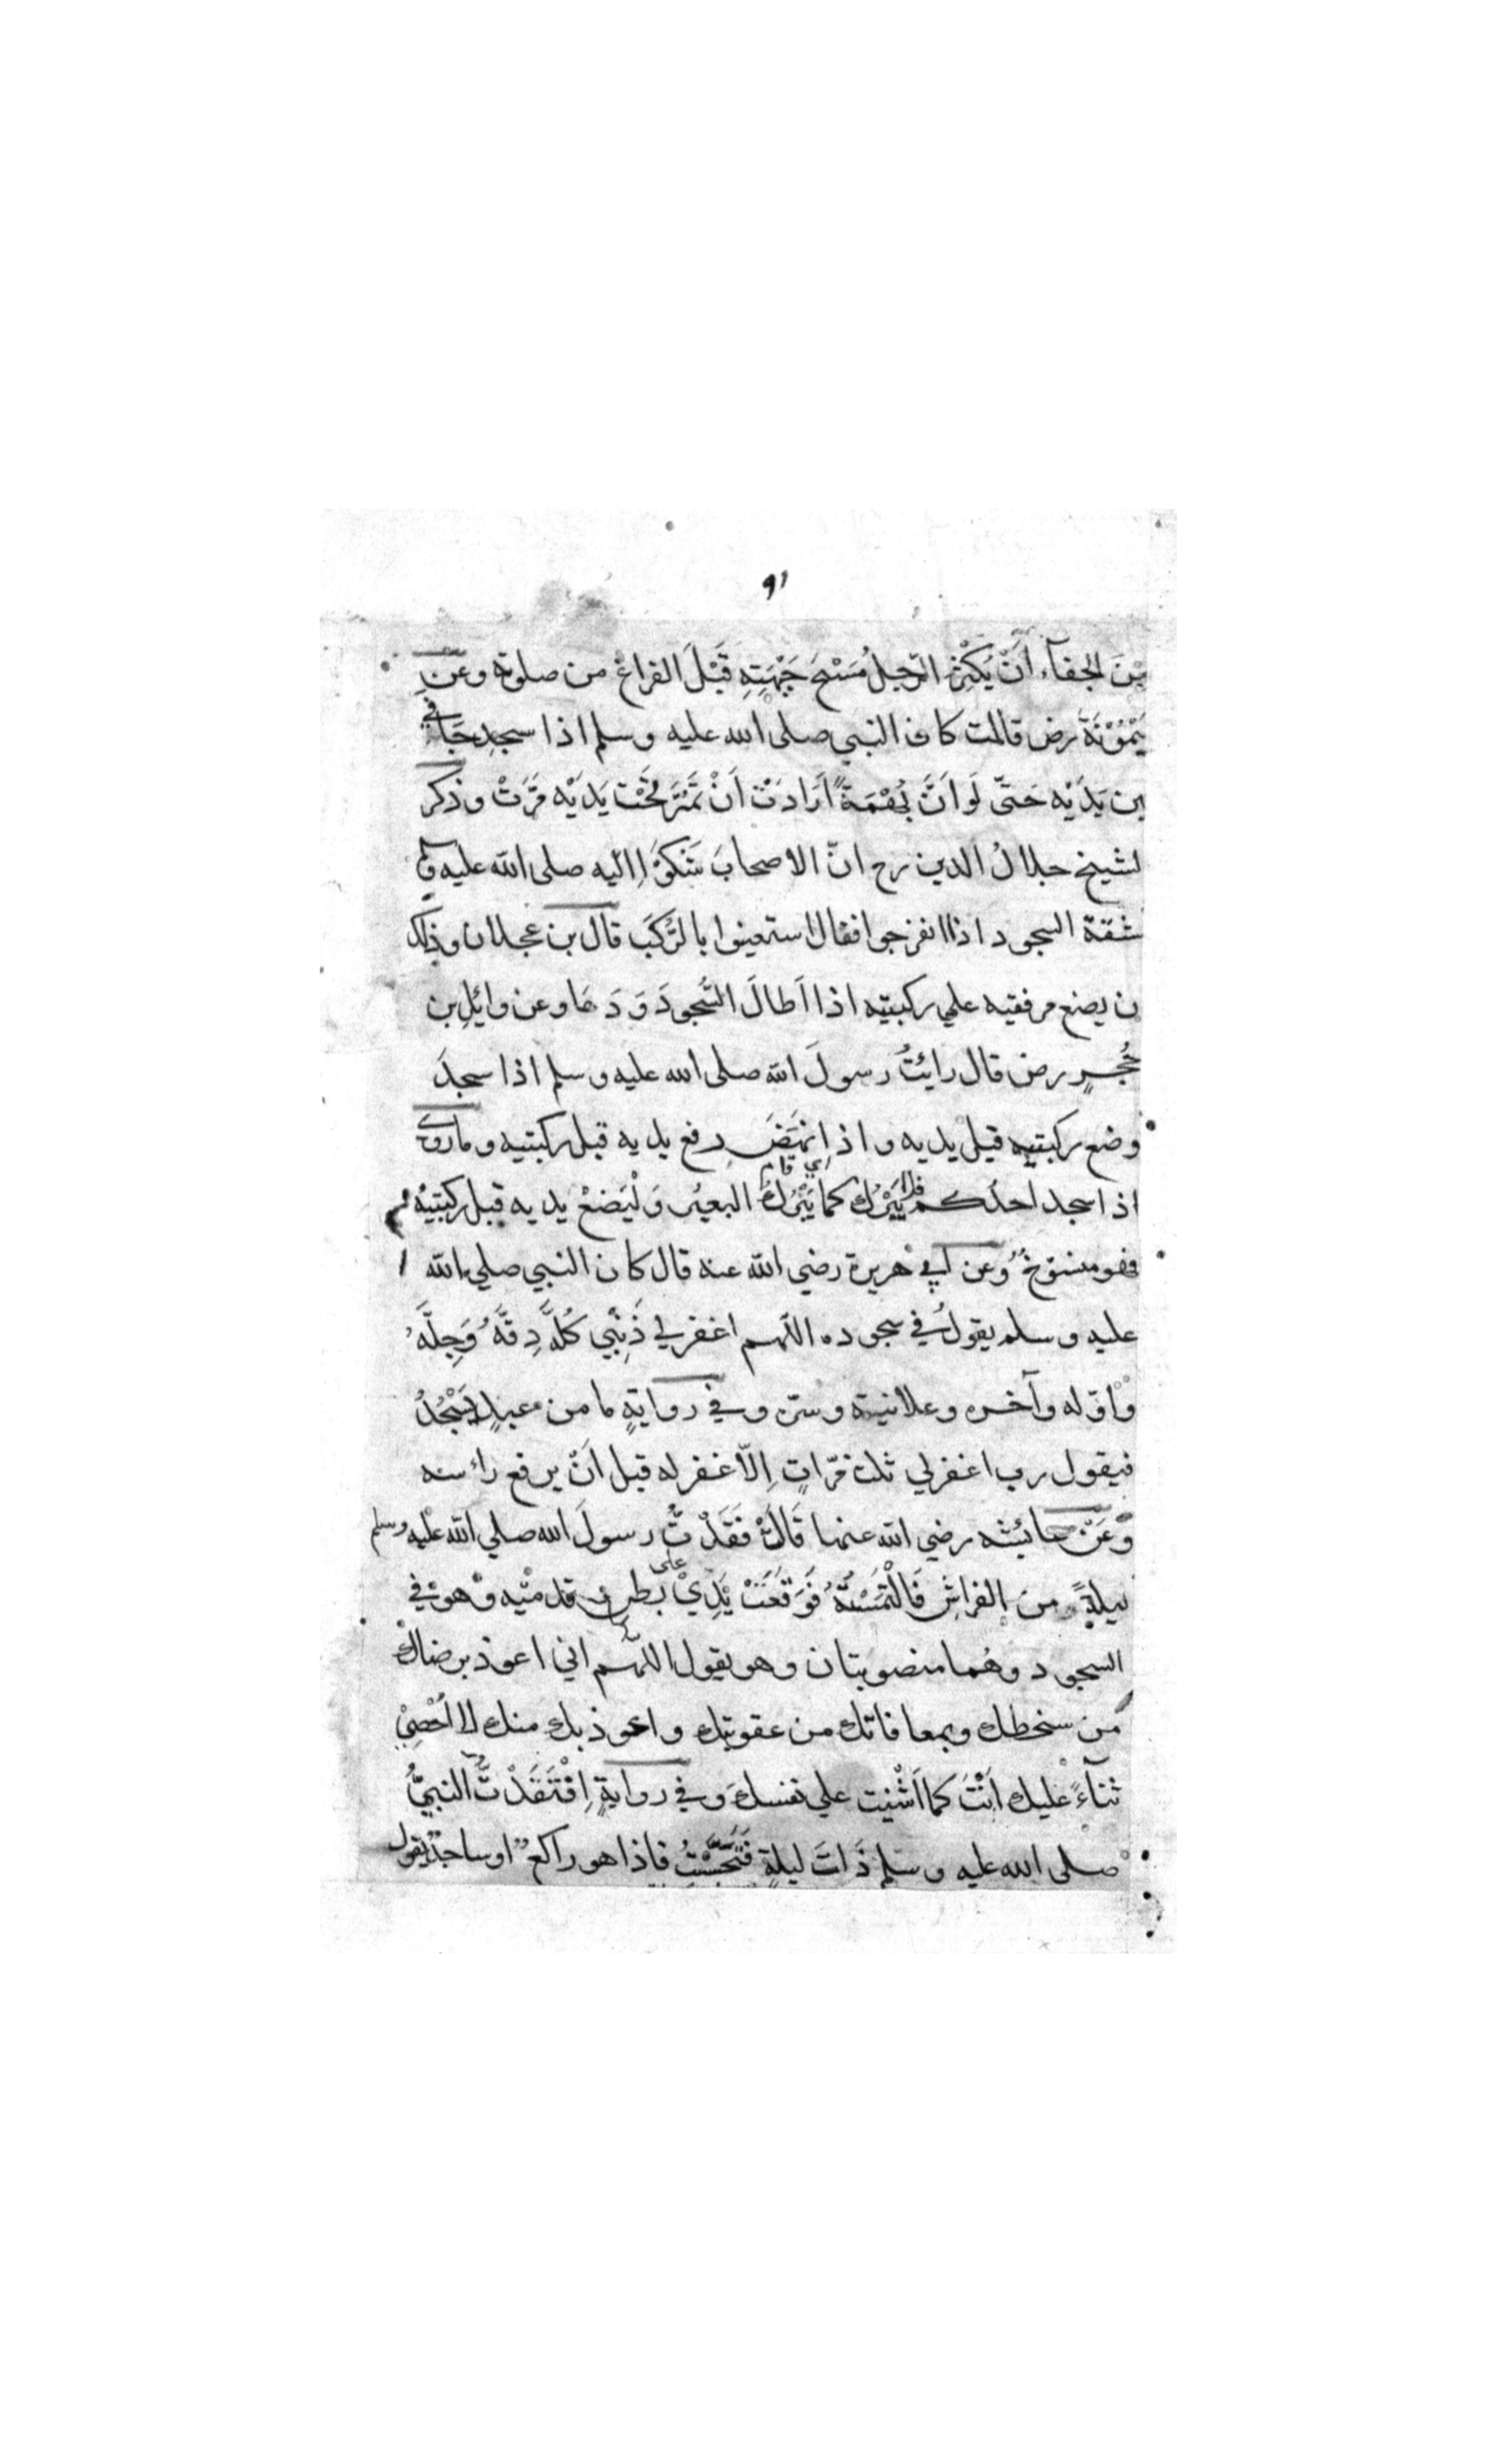 ٩١
مِنَ الجفآء اَنْ يُكْثِرَ الرّجلُ مَسْحَ جَبْهَتِهِ قَبْلَ الفراغ من صلوته وعَنْ
مَيْمُوْنَةَ رض قالت كان النبي صلى الله عليه وسلم اذا سجد جَافي
بين يَدَيْه حَتّى لَو اَنَّ بُهْمَةً اَرَادَتْ اَنْ تَمُرَّ تَحْتَ يَدَيْه مَرَّتْ وذكر
لشيخ جلالُ الدين رح انّ الاصحابَ شَكَوْا اليه صلى الله عليه وسلم
مشقة السجود اذا انفرجوا فقال استعينوا بالرُّكَبَ قال بن عجلان وذلك
ن يضع مرفقيه علي ركبتيه اذا اَطالَ السُّجودَ وَدَعَا وعن وائلِ بن
حُجرٍ رض قال رائتُ رسولَ الله صلى الله عليه وسلم اذا سجدَ
وضع ركبتيه قبل يديه واذا نَهَضَ رفع يديه قبل ركبتيه وما روي
اي قام
اذا سجد احدكم فلا يَبْرُك كما يَبْرُكُ البعيرُ وَلْيَضعْ يديه قبل ركبتيْه
فهو منسوخٌ وعن ابي هريرة رضي الله عنه قال كان النبي صلي الله
عليه وسلم يقولُ في سجوده اللّهم اغفر لي ذَنْبِي كُلَّهُ دِقَّهُ وَجِلَّهُ
وَاوّله وآخره وعلانيته وسرّه وفي روايةٍ ما من عبدٍ يَسْجُدُ
فيقول رب اغفرلي ثلث مَرّاتٍ اِلّا غفر له قبل اَنْ يرفع رائسه
وَعَنْ عائشه رضي الله عنها قَالَتْ فَقَدْتُ رسولَ الله صلي الله عليه وسلم
ليلةً من الفراشِ فَالْتَمَسْتُهُ فَوَقَعَتْ يَدِيْ على بَطنِ قدميْه وهو في
السجود وهُما منصوبتان وهو يقول اللّهم اني اعوذ برضاك
من سخطك وبمعافاتك من عقوبتك واعوذ بك منك لا اُحْصِيْ
ثنآءً عليك اَنْتَ كما اَثْنيت علي نفسك وَفي روايةٍ اِفْتَقَدْتُ النبيَّ
صلى الله عليه وسلم ذَاتَ ليلةٍ فَتَحَسَّسْتُ فاذا هو راكعٌ او ساجدٌ يقول